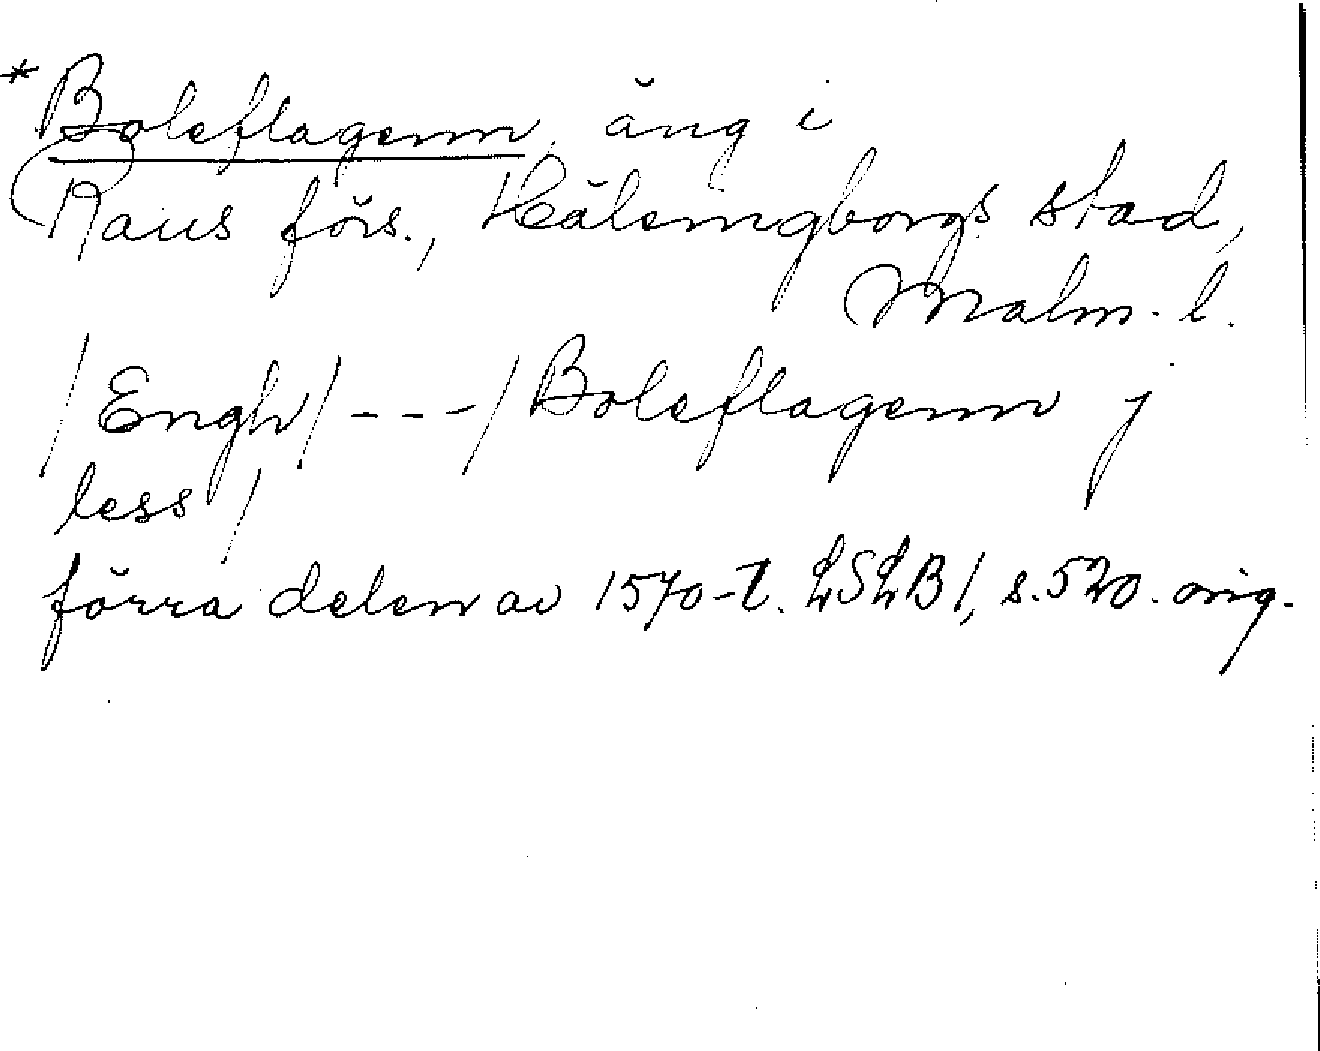 *Boleflagenn, äng i
Raus förs., Hälsingborgs stad,
Malm. l.
/Engh/---/Boleflagenn j
less/
förra delen av 1570-t. LSLB1, s.520. orig.